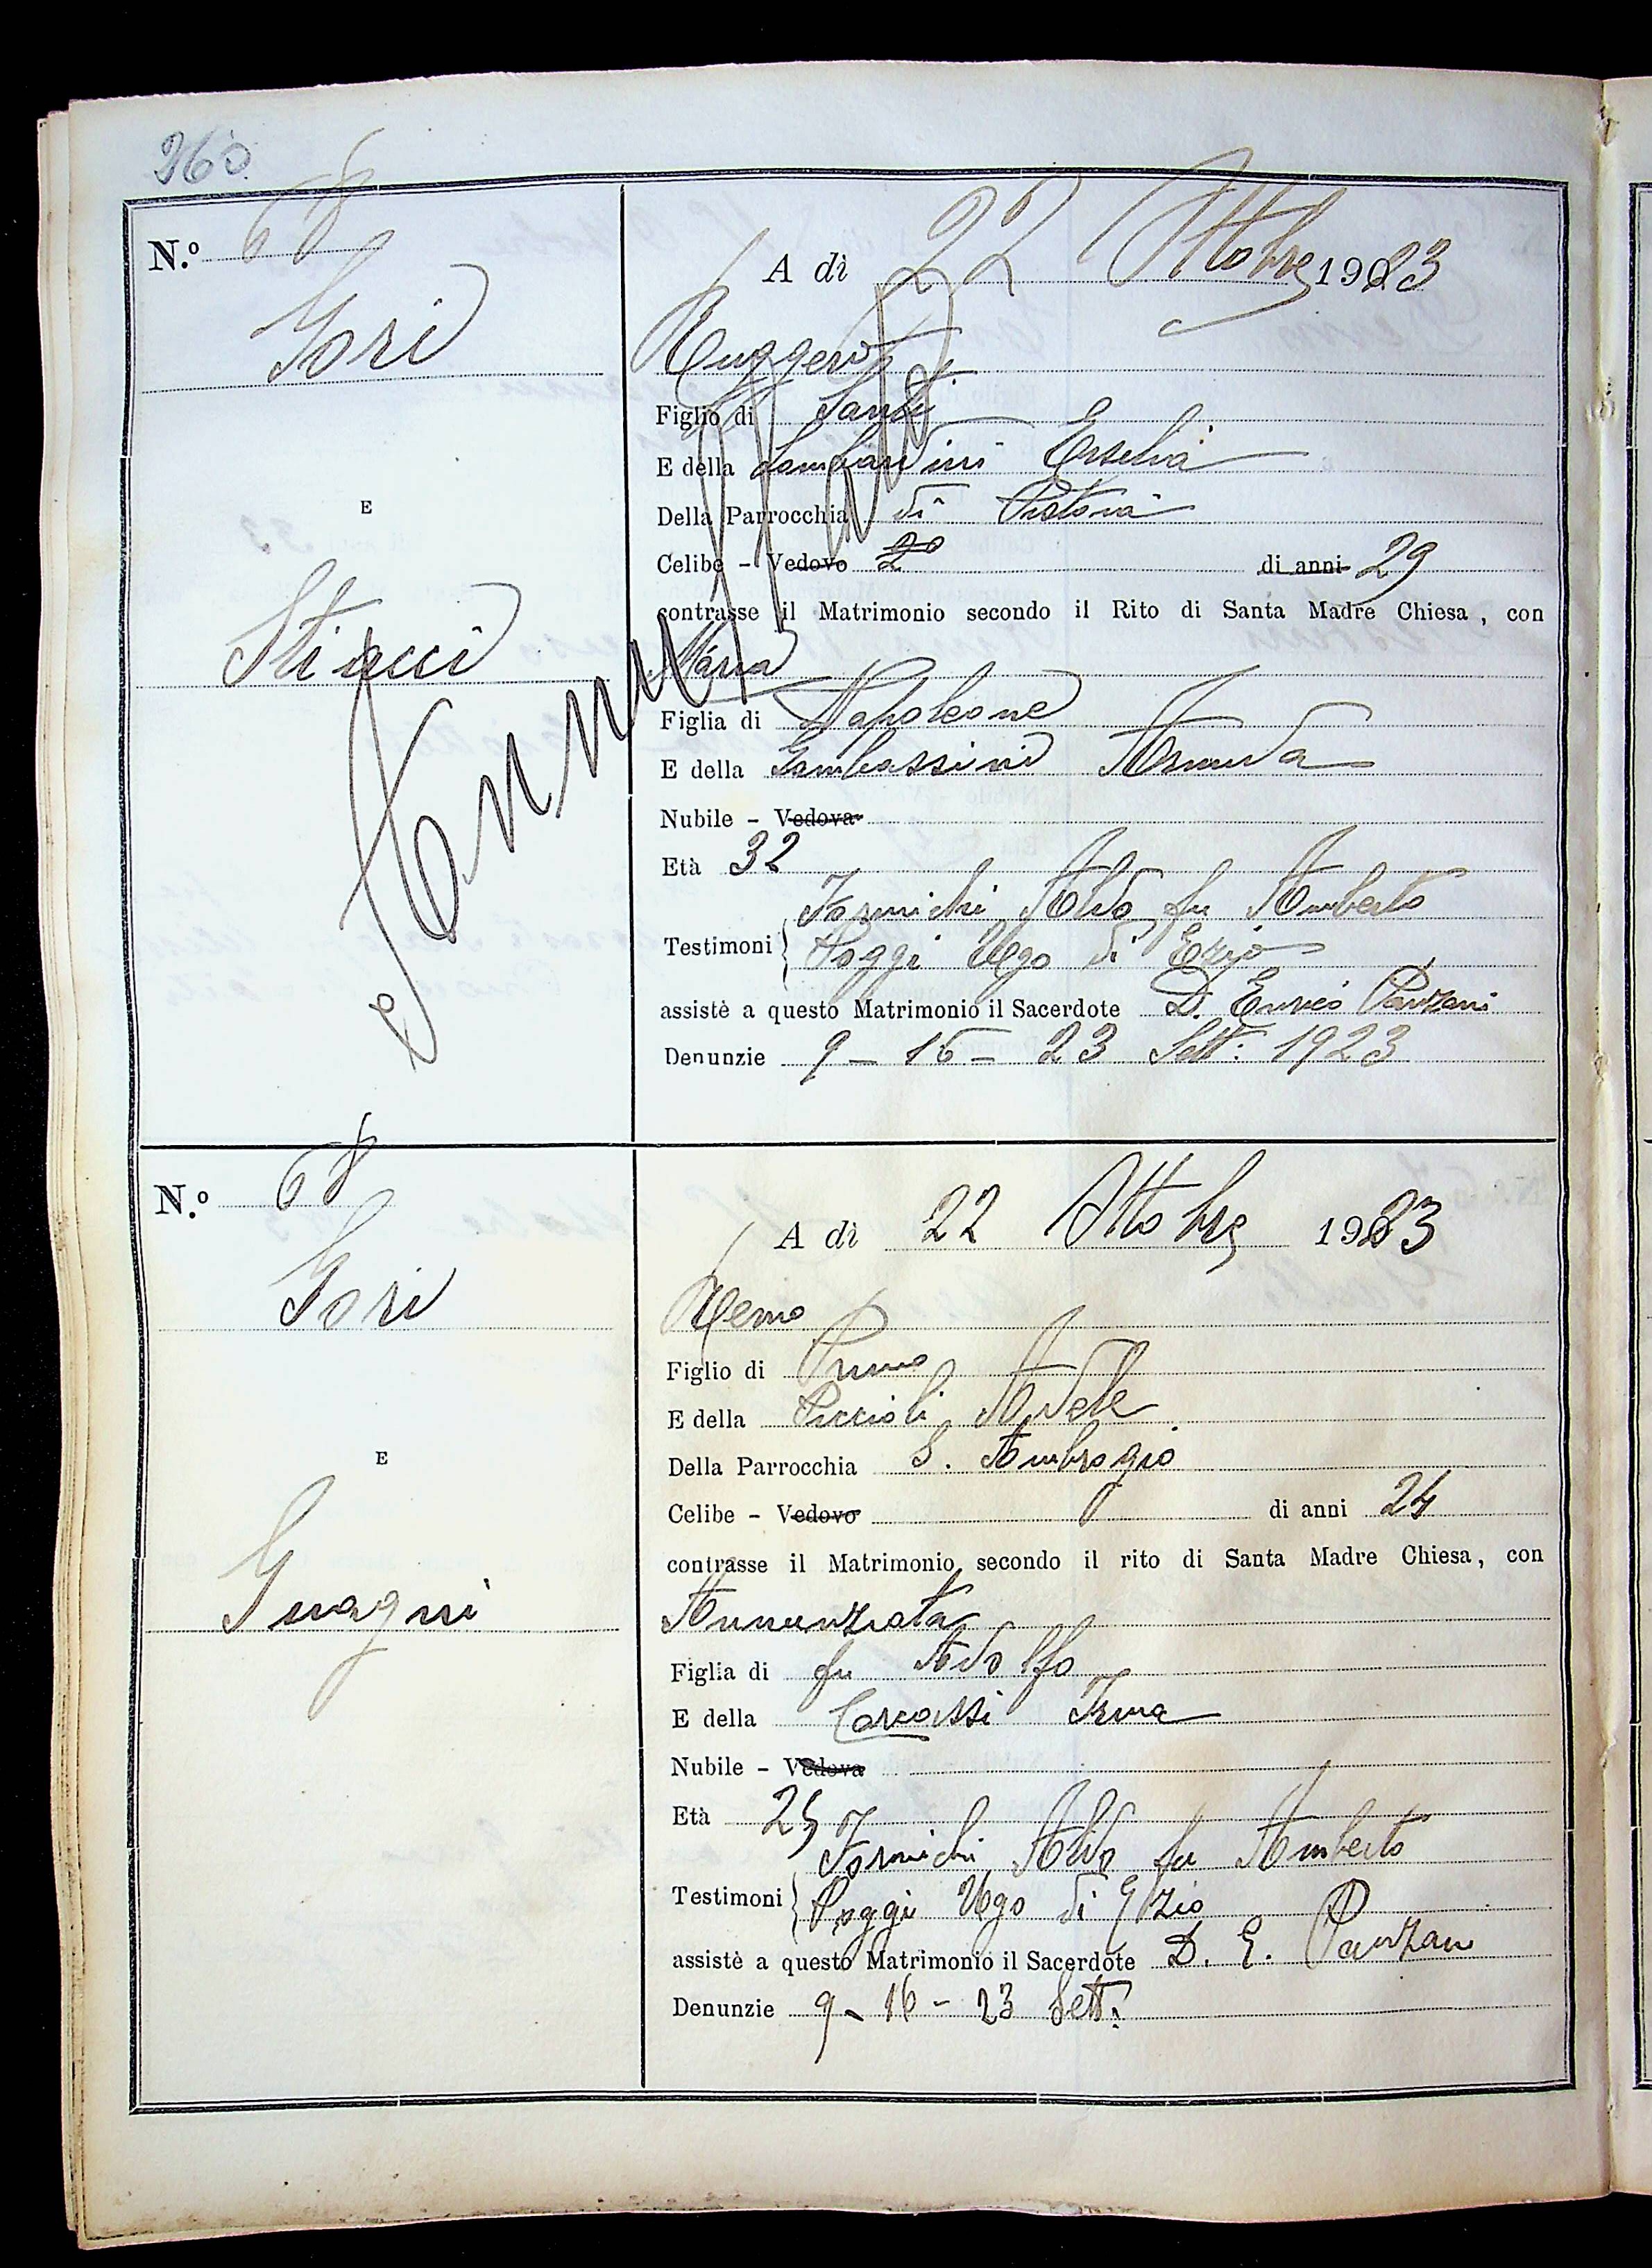 260
N.º 68
Gori
E
Stiacci
Annullato
A dì 22 Ottobre 1923
Ruggero
Figlio di Santi
E della Lombardini Erselia
Della Parrocchia di Pistoia
Celibe - Vedovo di anni 29
contrasse il Matrimonio secondo il Rito di Santa Madre Chiesa, con
Maria
Figlia di Napoleone
E della Gambassini
Nubile - Vedova
Età 32
Testimoni { Formichi Aldo fu Umberto
Poggi Ugo di Ezio
assistè a questo Matrimonio il Sacerdote D. Enrico Panzani
Denunzie 9 - 16 - 23 Sett: 1923
N.º 68
Gori
E
A dì 22 Ottobre 1923
Remo
Figlio di Primo
E della Piccioli Adele
Della Parrocchia S. Ambrogio
Celibe - Vedovo di anni 24
contrasse il Matrimonio secondo il rito di Santa Madre Chiesa, con
Annunziata
Figlia di fu Adolfo
E della Carcassi Irma
Nubile - Vedova
Età 25
Testimoni { Formichi Aldo fu Umberto
Poggi Ugo di Ezio
assistè a questo Matrimonio il Sacerdote D. E. Panzani
Denunzie 9 - 16 - 23 Sett: